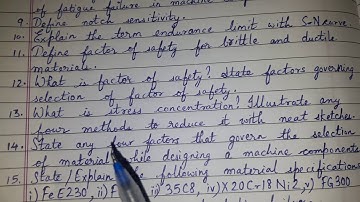 of fatigue failure in machine
9. Define notch sensitivity.
10. Explain the term endurance limit with S-N curve
11. Define factor of safety for brittle and ductile
materials.
12. What is factor of safety? State factors governing
selection of factor of safety.
13. What is stress concentration? Illustrate any
four methods to reduce it with neat sketches.
14. State any four factors that govern the selection
of material while designing a machine components
15. State/Explain the following material specifications
i) FeE230, ii) F iii) 35C8, iv) X20Cr18Ni2, v) FG300